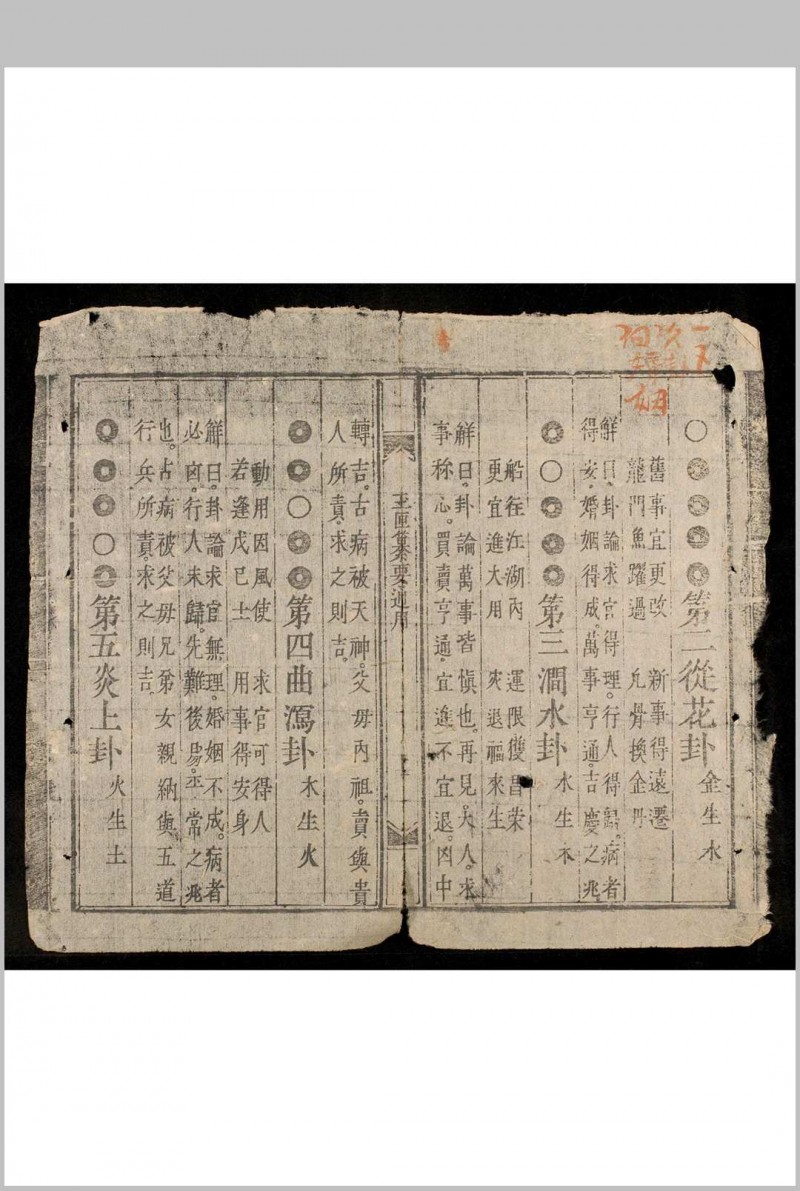 ○◎◎◎◎第二從花卦 金生水
舊事宜更改 新事得遠遷
龍門魚躍過 凡骨換金丹
解曰卦論求官得理。行人得歸。病者
得安。婚姻得成。萬事亨通。吉慶之兆
◎○◎◎◎第三澗水卦 水生木
船在江湖內 運限雙昌荣
更宜進大用 灾退福來生
解曰。卦論萬事皆愼也。再見大人。求
事称心。買賣亨通。宜進不宜退。凶中
玉匣纂要通用
轉吉。古病被天神。父毋內祖。賣與貴
人所責。求之則吉。
◎◎○◎◎第四曲瀉卦 木生火
動用因風使 求官可得人
若逢戊已土 用事得安身
解曰卦論求官無理。婚姻不成。病者
必凶。行人未歸。先難後易。平常之兆
也。占病被父毋兄弟女親納與五道
行兵所責。求之則吉。
◎◎◎○◎第五炎上卦 火生土